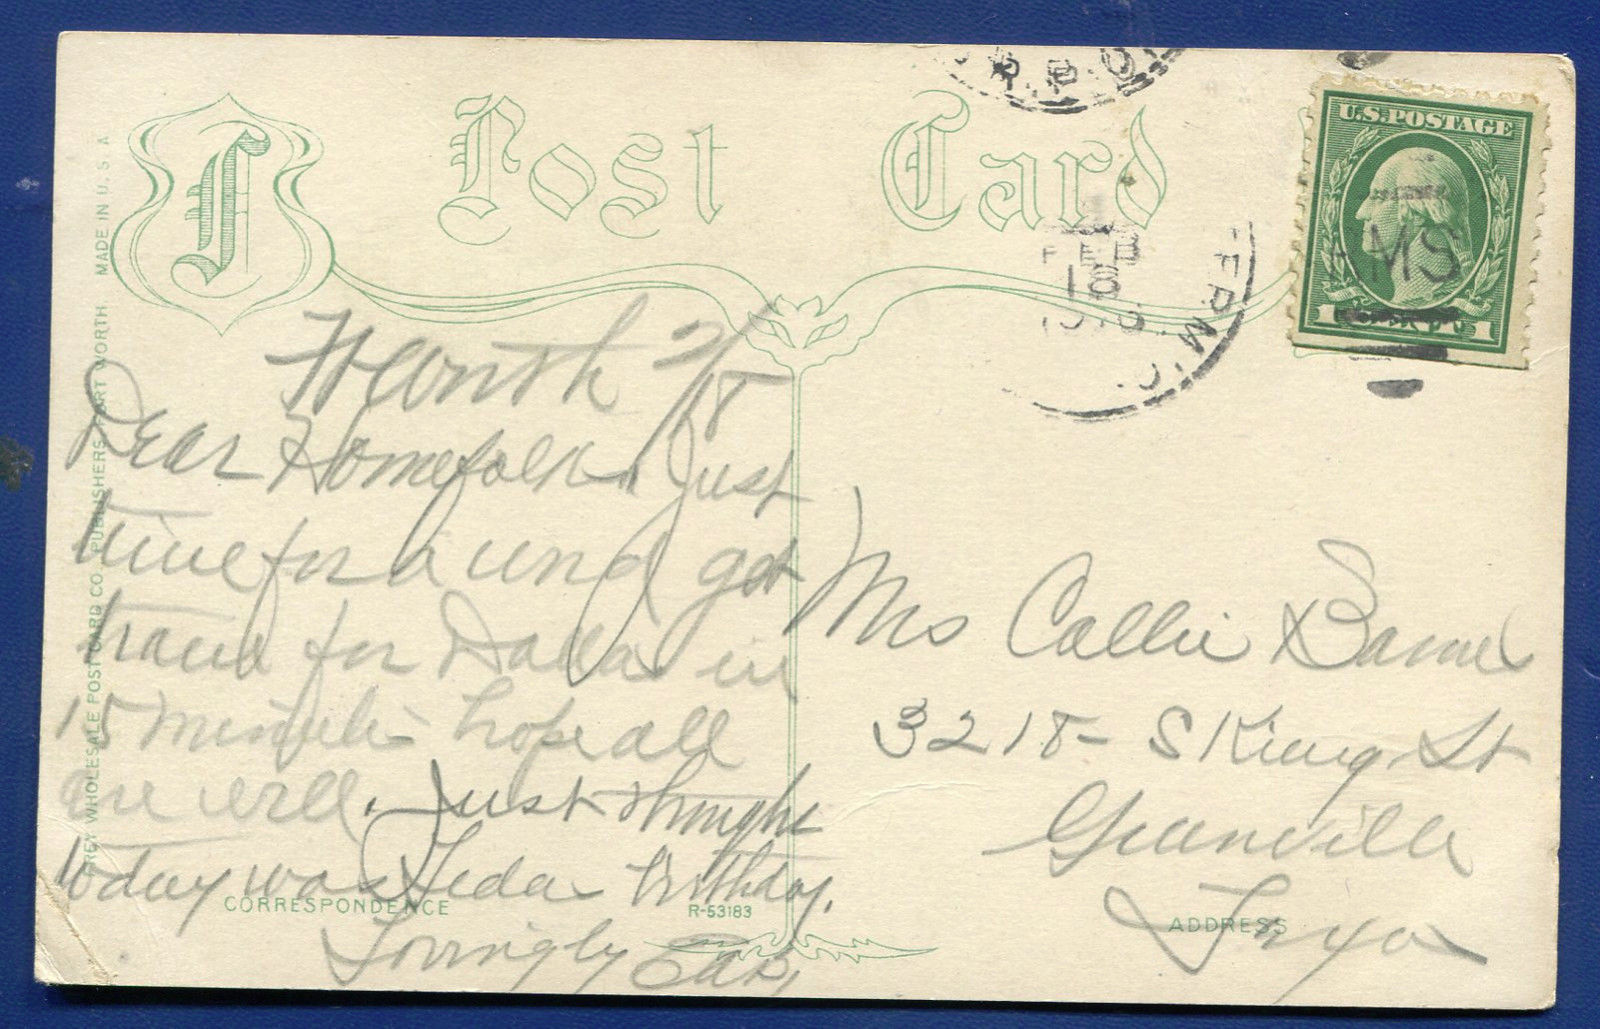 Post Card
U.S. POSTAGE
1 1
RMS
FEB
18
MADE IN U. S. A
WHOLESALE POST CARD CO., PUBLISHERS, FORT WORTH
Ft Worth 2/18
Dear Homefolks, Just
time for a word get
train for Dallas in
15 minutes hope all
are well. Just thought
today was birthday.
Lovingly
CORRESPONDENCE
R-53183
Mrs Callie
3218 - S King St
Greenville
ADDRESS